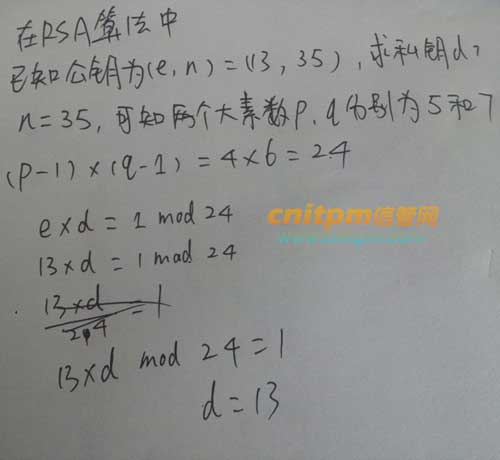 在RSA算法中
已知公钥为(e,n)=(13,35),求私钥d?
n=35,可知两个大素数p,q分别为5和7
(p-1)×(q-1)=4×6=24
e×d=1 mod 24
cnitpm信管网
13×d=1 mad 24
13×d/24=1
13×d mod 24=1
d=13